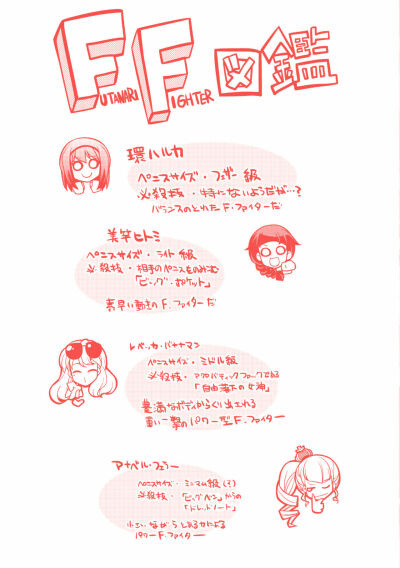 FUTANARI FIGHTER 図鑑
環ハルカ
ペニスサイズ・フェザー級
必殺技・特にないようだが…?
バランスのとれたF・ファイターだ
美竿ヒトミ
ペニスサイズ・ライト級
必殺技・相手のペニスをのみこむ
「ビッグ・ポケット」
素早い動きのF.ファイターだ
レベッカ・バナナマン
ペニスサイズ・ミドル級
必殺技・アクロバティックファックである
「自由落下の女神」
豊満なボディからくり出される
重い一撃のパワー型F・ファイター
アナベル・フェラー
ペニスサイズ・ミニマム級(?)
必殺技・「ビッグ・ペン」からの
「ドレッドノート」
小さいながら
パワーF・ファイター